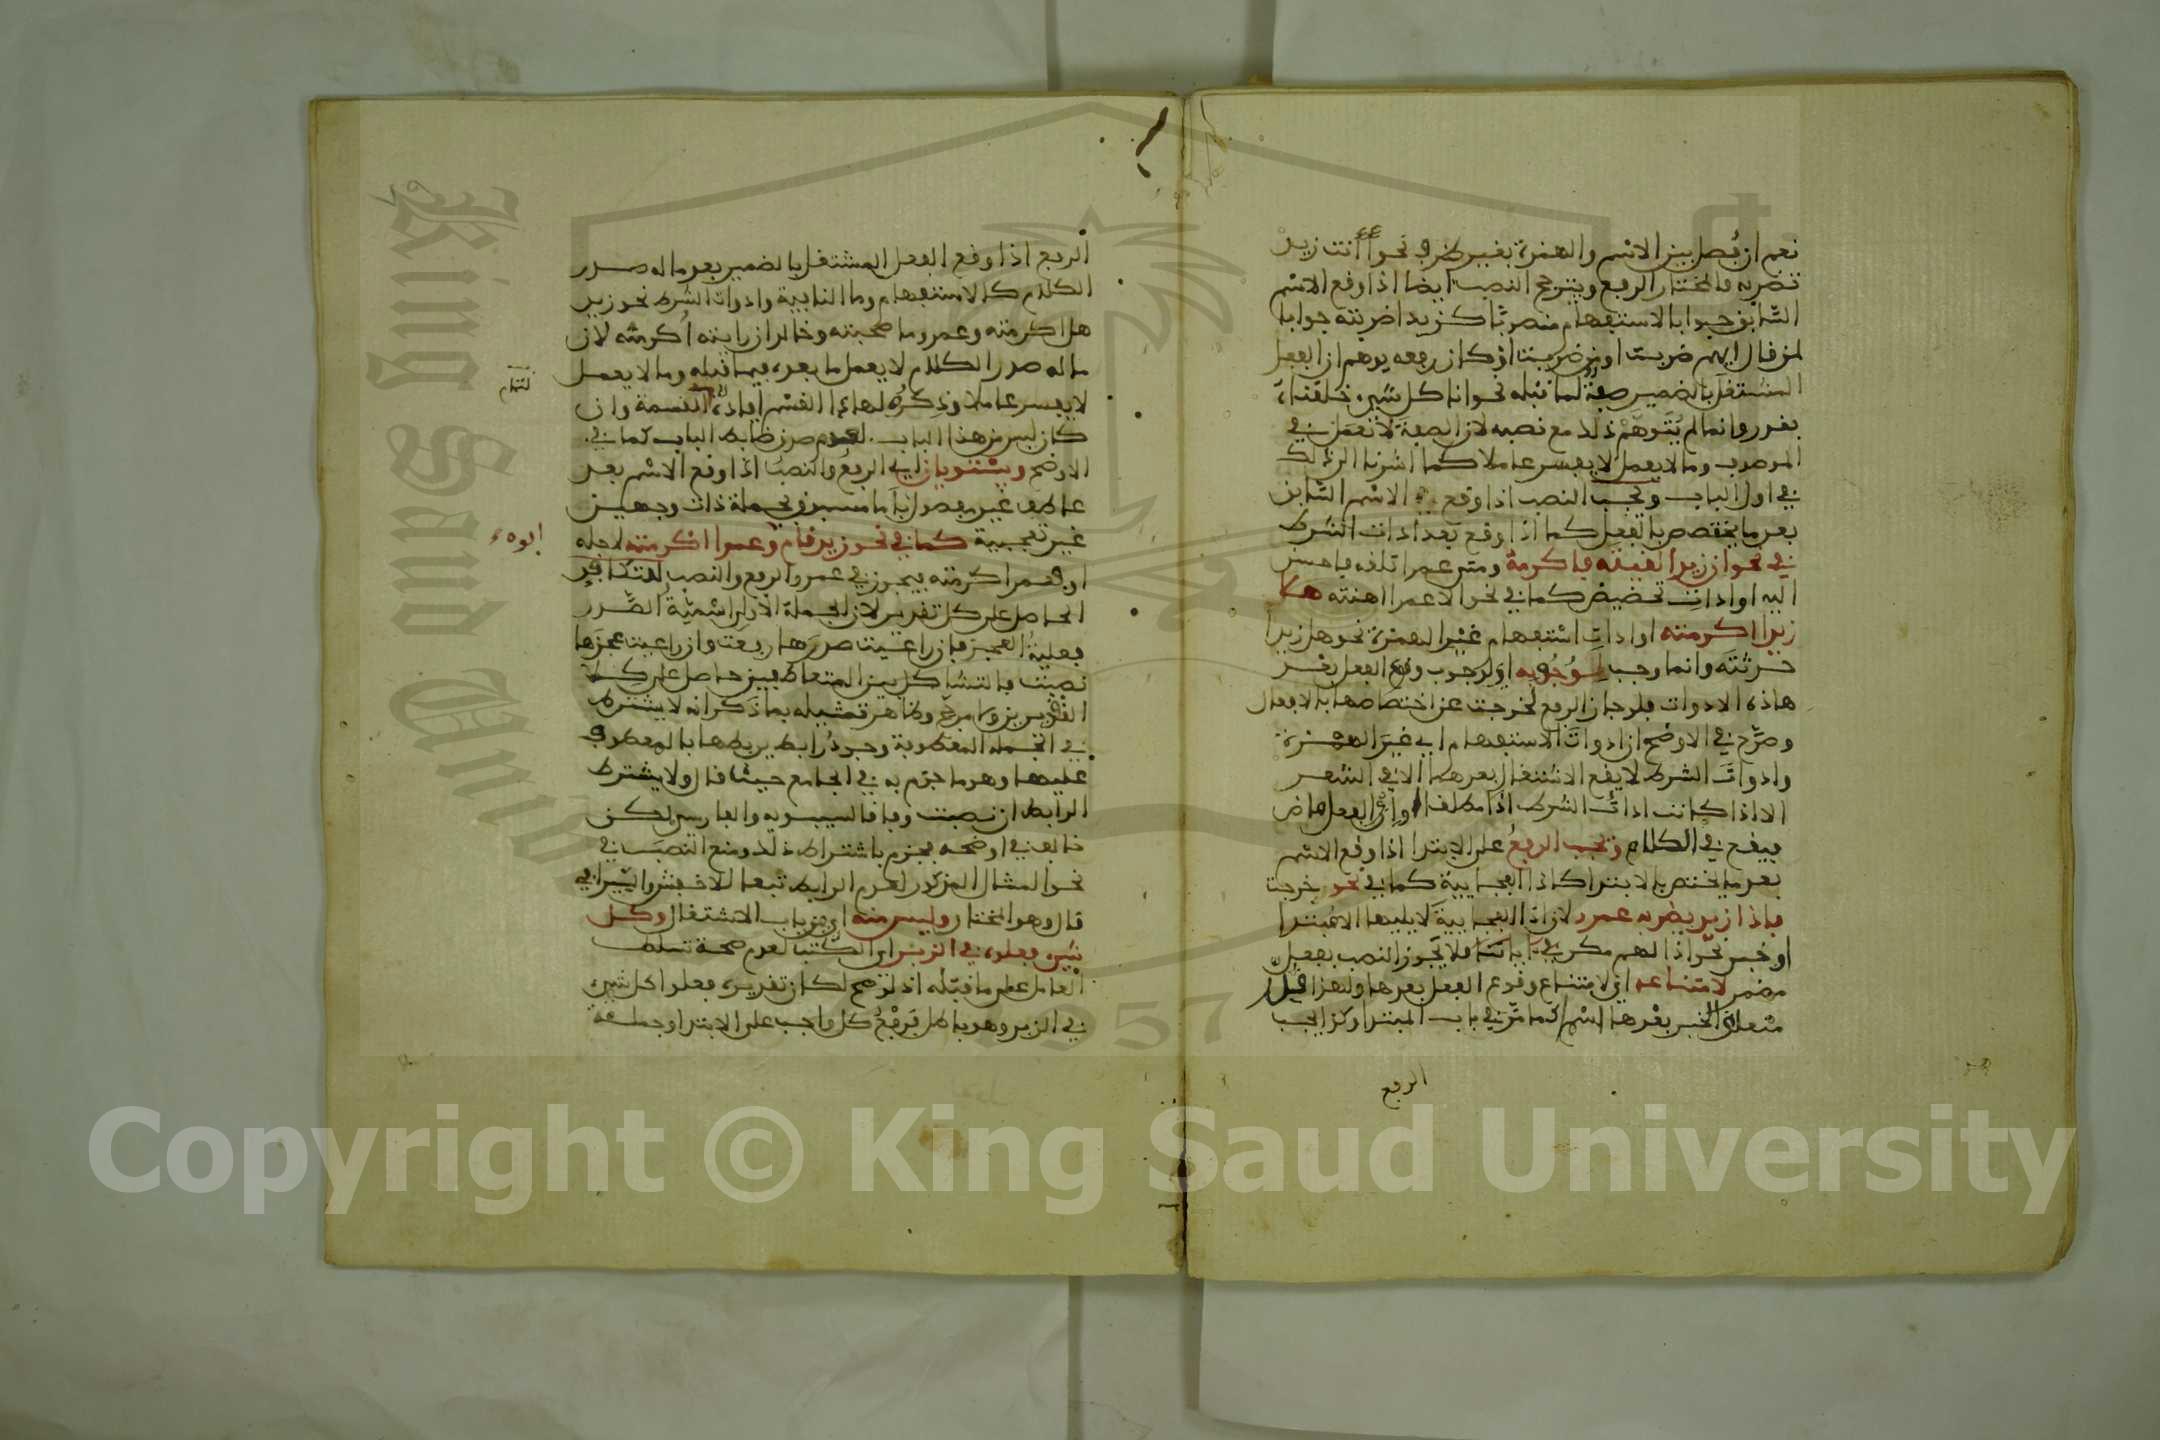 نعم ان فُصل بين الاسم والهمزة بغير ظرف نحو أأنت زيد
تضربه فالمختار الرفع ويترجح النصب ايضا اذا وقع الاسم
السّابق جوابا لاستفهام منصوبًا كزيدا ضربته جوابا
لمن قال ايهم ضربت او من ضربت او كان رفعه يوهم ان الفعل
المشتغل بالضمير صفة لما قبله نحو انا كل شيء خلقناه
بقدر وانما لم يُتوهم ذلك مع نصبه لان الصفة لا تعمل في
الموصوف وما لا يعمل لا يفسر عاملا كما اشرنا الى ذلك
في اول الباب ويجب النصب اذا وقع الاسم السّابق
بعد ما يختص بالفعل كما اذا وقع بعد ادات الشرط
في نحو ان زيدا لقيته فاكرمه ومتى عمرا تلقه فاحسن
اليه او ادات تحضيض كما في نحو الا عمرا اهنته هلا
زيدا اكرمته او ادات استفهام غير الهمزة نحو هل زيدا
حدثته وانما وجب لوُجُوبه اي لوجوب وقوع الفعل بعد
هاذه الادوات فلو جاز الرفع لخرجت عن اختصاصها بالافعال
وصرّح في الاوضح ان ادوات الاستفهام اي غير الهمزة
وادوات الشرط لا يقع الاشتغال بعدهما الا في الشعر
الا اذا كانت اداتُ الشرط اذا مطلقا او ان والفعل ماض
فيقع في الكلام ويجب الرفعُ على الابتدا اذا وقع الاسم
بعد ما يختص بالابتدا كاذا الفجايية كما في نحو خرجت
فاذا زيد يضربه عمرو لان اذا الفجايية لا يليها الا مبتدا
او خبر نحو اذا لهم مكر في اياتنا فلا يجوز النصب بفعل
مضمر لامتناعه اي لامتناع وقوع الفعل بعدها ولهذا قدر
متعلق الخبر بعدها اسم كما مرّ في باب المبتدا وكذا يجب
الرفع
الرفع اذا وقع الفعل المشتغل بالضمير بعد ما له صدر
الكلام كالاستفهام وما النافية وادوات الشرط نحو زيد
هل اكرمته وعمرو ما صحبته وخالد ان رايته اُكرمه لان
ما له صدر الكلام لا يعمل ما بعده فيما قبله وما لا يعمل
لا يفسر عاملا وذكرُه لهاذا القسم افاده القسمة وان
كان ليس من هذا الباب لعدم صدق ضابط الباب كما في
الاوضح ويستويان اي الرفعُ والنصبُ اذا وقع الاسم بعد
عاطف غير مفصول باما مسبوق بجملة ذات وجهين
غير تعجبية كما في نحو زيد قام وعمرا اكرمته لاجله
او فعمرا اكرمته فيجوز في عمرو الرفع والنصب للتكافي
الحاصل على كل تقدير لان الجملة الاولى اسميةُ الصّدر
فعليةُ العجز فان راعيت صدرها رفعت وان راعيت عجزها
نصبت فالتشاكل بين المتعاطفين حاصل على كلا
التقديرين ولا مرجح وظاهر تمثيله بما ذكر انه لا يشترط
في الجملة المعطوفة وجودُ رابط يربطها بالمعطوف
عليها وهو ما جزم به في الجامع حيث قال ولا يشترط
الرابط ان نصبت وفاقا لسيبويه والفارسي لكن
خالف في اوضحه فجزم باشتراط ذلك ومنع النصبَ في
نحو المثال المذكور لعدم الرابط تبعا للاخفش والسّيرافي
قال وهو المختار وليس منه اي من باب الاشتغال وكل
شيء فعلوه في الزبر اي الكتب لعدم صحة تسلط
العامل على ما قبله اذ لو صح لكان تقديره فعلوا كل شيء
في الزبر وهو باطل فرفْعُ كل واجب على الابتدا وجملة